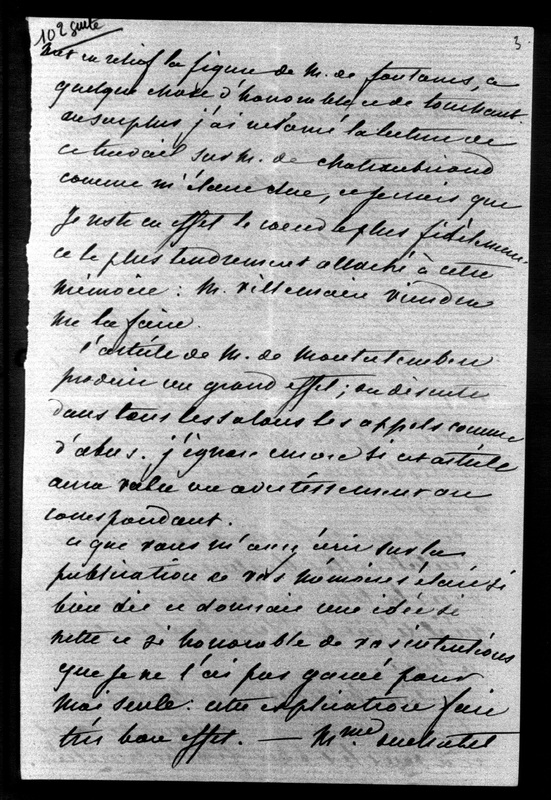 10e suite
3
met en relief la figure de M. de fontanes, a
quelque chose d'honorable et de touchant.
au surplus j'ai reclamé la lecture de
ce travail sur M. de chateaubriand
comme m'étant due, ce jamais que
Je reste en effet le coeur le plus fidèlement
et le plus tendrement attaché à cette
mémoire : M. villemain viendra
me la faire.
l'article de M. de Montalembert
produit un grand effet ; on discute
dans tous les salons les appels comme
d'abus. j'ignore encore si cet article
aura valu un avertissement au
correspondant.
ce que vous m'avez écrit sur la
publication de vos mémoires était si
bien dit et donnait une idée si
nette et si honorable de vos intentions
que je ne l'ai pas gardé pour
moi seule : cette explication fait
très bon effet. — Mme duchatel